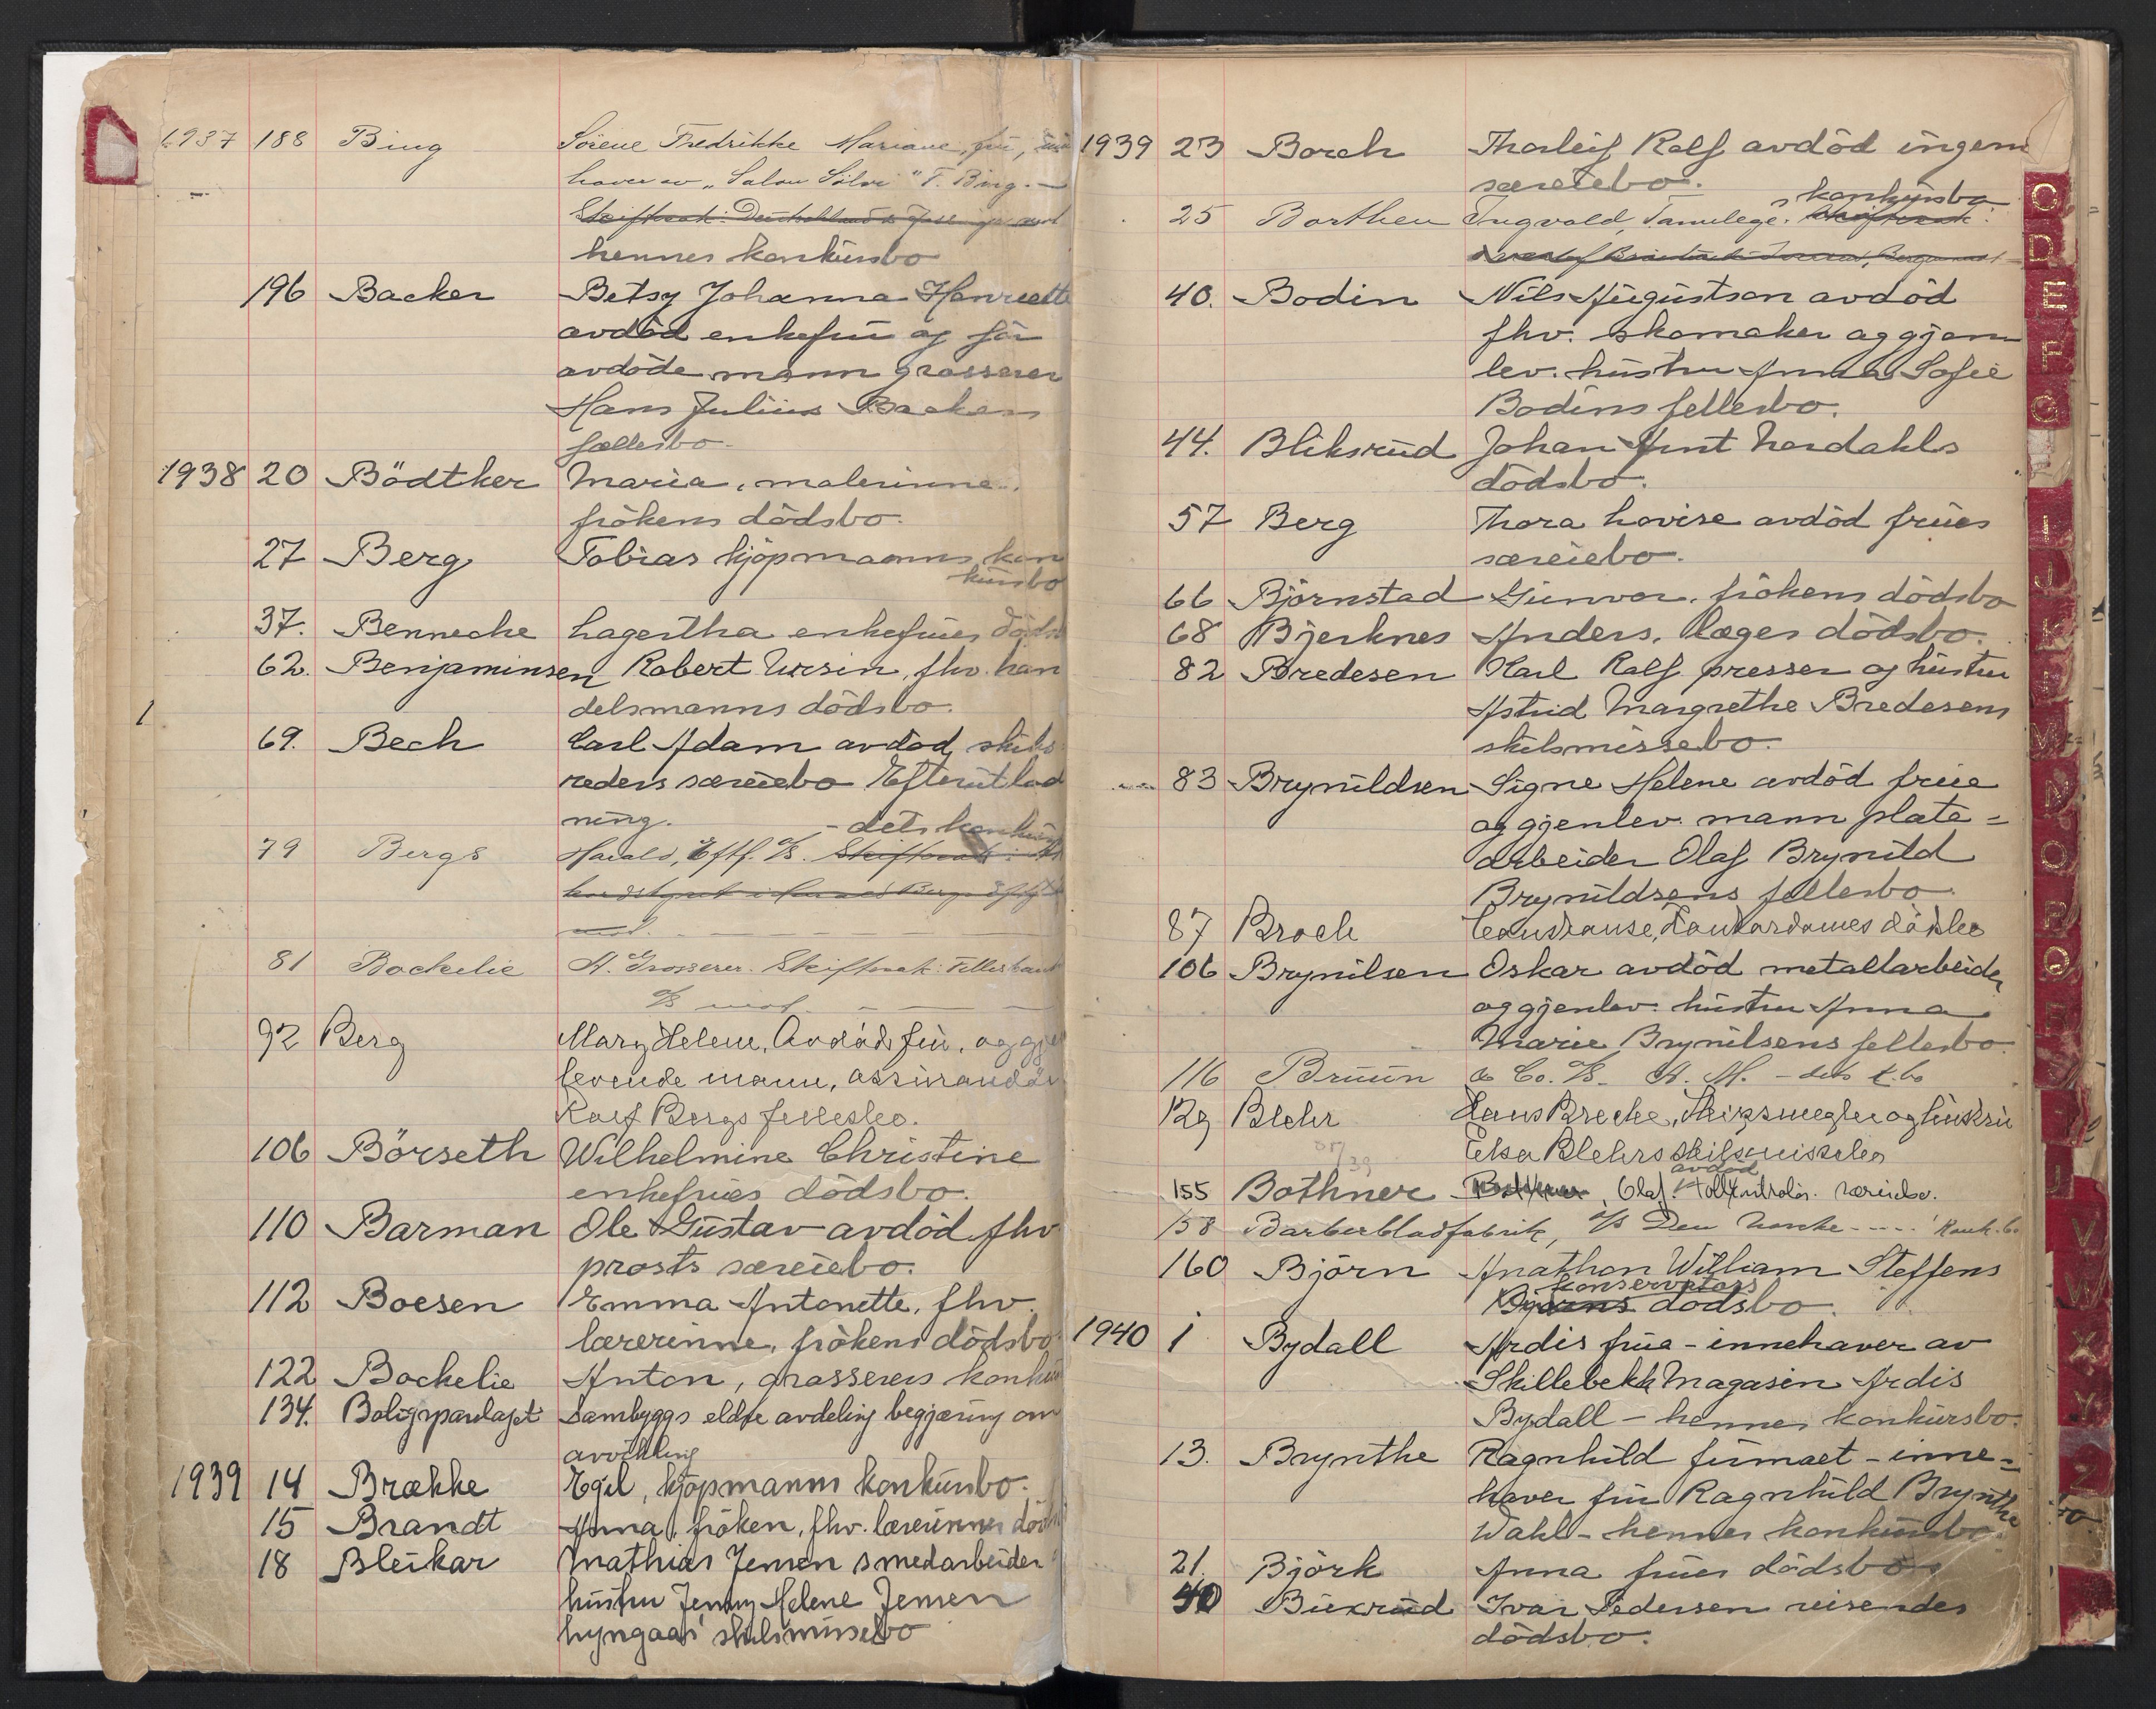 1937 188 Bing Sörene Fredrikke Mariane, fru, inne
haver av „Salon Sölvi" F. Bing. —
hennes konkursbo
196 Backer Betsy Johanna Henriette
avdöd enkefru og för
avdöde mann grosserer
Hans Julius Backers
fællesbo.
1938 20 Bödtker Maria, malerinne,
frökens dödsbo.
27 Berg Tobias kjöpmanns kon
kursbo
37. Bennecke Lagertha enkefrues dödsb
62. Benjaminsen Robert Ursin, fhv. han
delsmanns dödsbo.
69. Bech Carl Adam avdöd, skibs
reders særeiebo Efterutlod
ning.
- dets konkurs
79 Bergs Harald, Eftf. A/S. Skiftesak:
mot.
81 Bockelie A. Grosserer. Skiftesak: Felleskont
A/S mot — — —
92 Berg Mary Helene, Avdöd fru, og gjen
levende mann, assurandör
Rolf Bergs fellesbo.
106 Börseth Wilhelmine Christine
enkefrues dödsbo.
110 Barman Ole Gustav avdöd fhv
prosts særeiebo.
112 Boesen Emma Antonette, fhv.
lærerinne, frökens dödsbo
122 Bockelie Anton, grosserers konkur
134. Boligsparelaget Sambyggs eldre avdeling begjæring om
avvikling
1939 14 Brække Egil, kjöpmanns konkursbo.
15 Brandt Anna, fröken, fhv. lærerinnes död
18 Bleikar Mathias Jensen smedarbeider
hustru Jenny Helene Jensen
Lyngaas' skilsmissebo
1939 23 Borch Thorleif Rolf avdöd ingeni
særeiebo.
s konkursbo
25 Borthen Ingvald, Tannlege. Skiftesak:
40. Bodin Nils Augustson avdöd
fhv. skomaker og gjen
lev. hustru Anna Sofie
Bodins fellesbo.
44. Bliksrud Johan Arnt Nordahls
dödsbo.
57 Berg Thora Lovise avdöd frues
særeiebo.
66 Björnstad Gunvor, frökens dödsbo
68 Bjerknes Anders, læges dödsbo.
82 Bredesen Karl Rolf presser og hustru
Astrid Margrethe Bredesens
skilsmissebo.
83 Brynildsen Signe Helene avdöd frue
og gjenlev. mann plate=
arbeider Olaf Brynild
Brynildsens fellesbo.
87 Broch
106 Brynilsen Oskar avdöd metallarbeider
og gjenlev. hustru Anna
Marie Brynilsens fellesbo.
116 Bruun & Co. A/S. A. M. - dets k.bo
129 Blehr Hans Breche, Skipsmegler og hustru
Elsa Blehrs skilsmissebo
avdöd
155 Bothner Bothner, Olaf. Tollkontrolör. særeiebo.
158 Barberbladfabrik, A/S Den Norske - - - - Konk.bo
160 Björn Anathon William Steffens
konservators
Björns dödsbo.
1940 1 Bydall Ardis frue - innehaver av
Skillebekk Magasin Ardis
Bydall - hennes konkursbo.
13. Brynthe Ragnhild firmaet - inne=
haver fru Ragnhild Brynthe
Wahl - hennes konkursbo.
21. Björk Anna frues dödsbo
40 Buxrud Ivar Pedersen reisendes
dödsbo.
C
D
E
F
G
I
J
K
L
M
N
O
P
Q
R
S
T
U
V
W
X
Y
Z